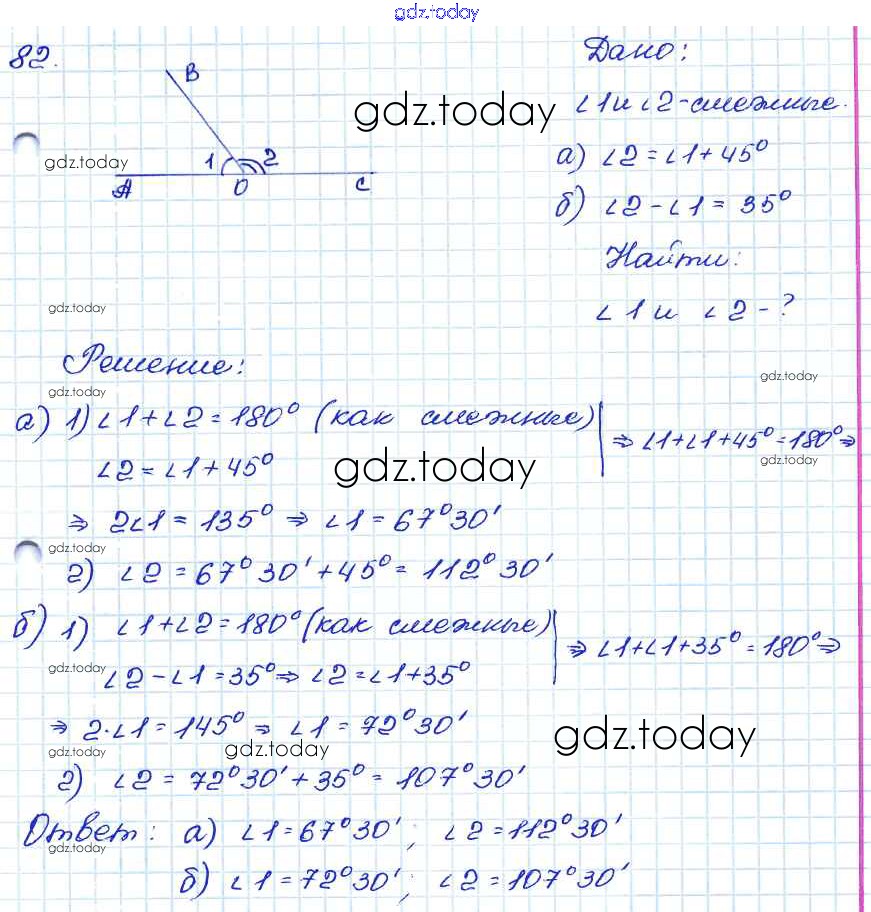 gdz.today
82.
B
1 2
A O C
gdz.today
gdz.today
Дано:
∠1 и ∠2 - смежные.
а) ∠2 = ∠1 + 45°
б) ∠2 - ∠1 = 35°
Найти:
∠1 и ∠2 - ?
gdz.today
Решение:
gdz.today
gdz.today
а) 1) ∠1 + ∠2 = 180° (как смежные)
∠2 = ∠1 + 45°
⇒ ∠1 + ∠1 + 45° = 180° ⇒
gdz.today
gdz.today
⇒ 2∠1 = 135° ⇒ ∠1 = 67°30'
gdz.today
2) ∠2 = 67°30' + 45° = 112°30'
б) 1) ∠1 + ∠2 = 180° (как смежные)
gdz.today
∠2 - ∠1 = 35° ⇒ ∠2 = ∠1 + 35°
⇒ ∠1 + ∠1 + 35° = 180° ⇒
⇒ 2·∠1 = 145° ⇒ ∠1 = 72°30'
gdz.today
gdz.today
gdz.today
2) ∠2 = 72°30' + 35° = 107°30'
Ответ: а) ∠1 = 67°30'; ∠2 = 112°30'
gdz.today
б) ∠1 = 72°30'; ∠2 = 107°30'